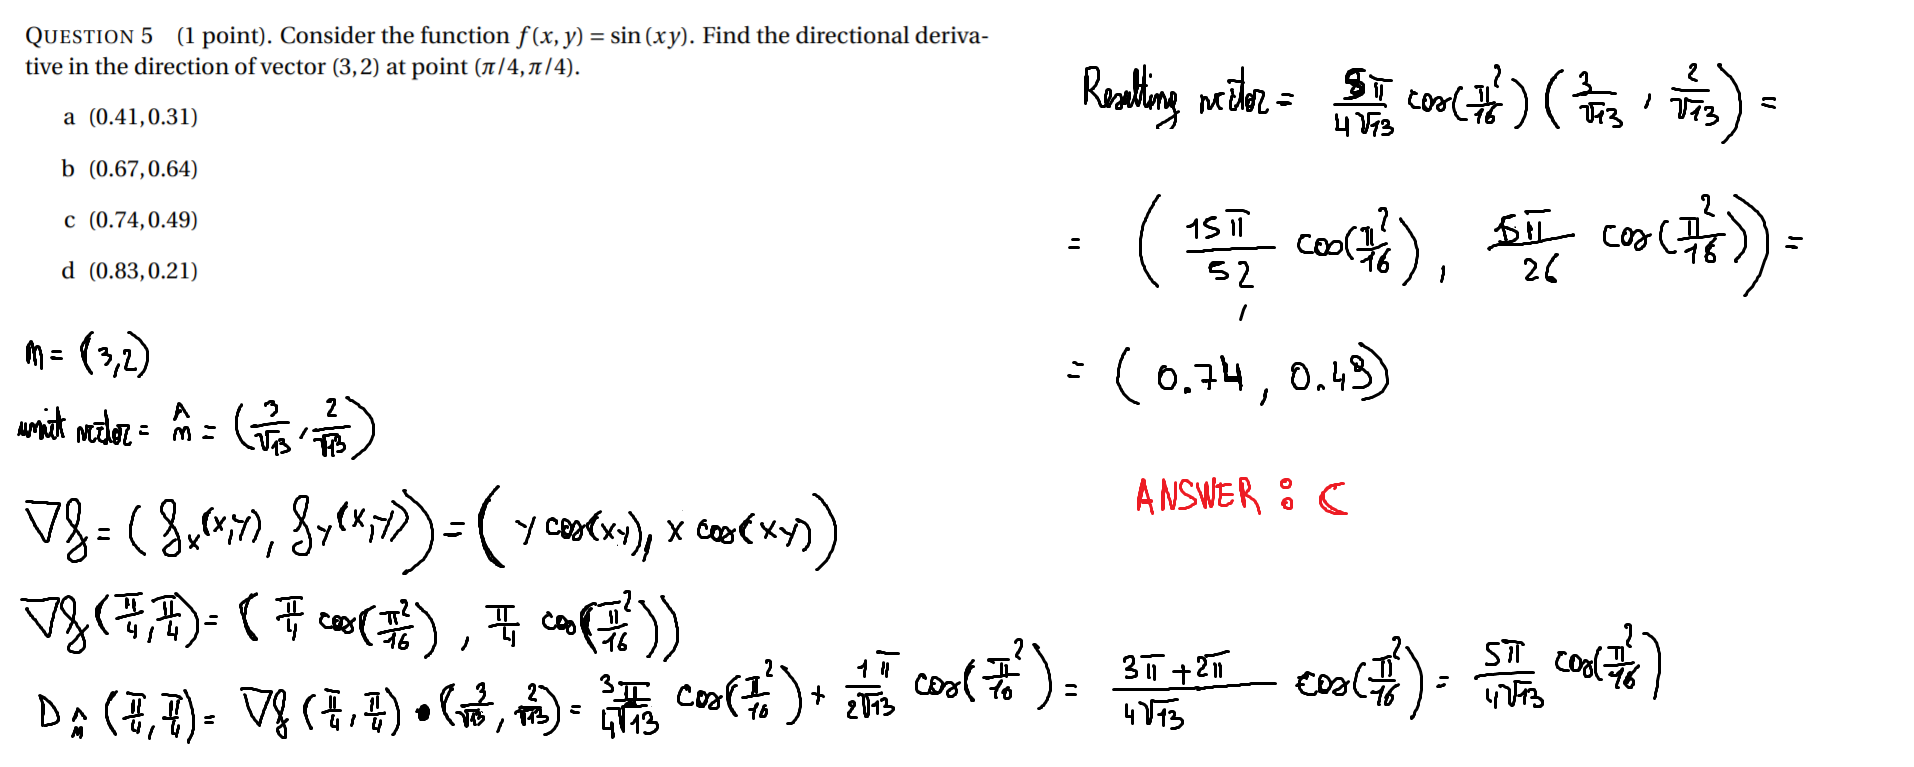 QUESTION 5 (1 point). Consider the function f(x, y) = sin(xy). Find the directional deriva-
tive in the direction of vector (3,2) at point (π/4,π/4).
a (0.41,0.31)
b (0.67,0.64)
c (0.74,0.49)
d (0.83,0.21)
m = (3,2)
unit vector = m̂ = (3/√13, 2/√13)
∇f = (fx(x,y), fy(x,y)) = (y cos(xy), x cos(xy))
∇f(π/4, π/4) = (π/4 cos(π²/16), π/4 cos(π²/16))
Dm̂ (π/4, π/4) = ∇f(π/4, π/4) • (3/√13, 2/√13) = 3π/4√13 cos(π²/16) + 1π/2√13 cos(π²/16) = 3π+2π/4√13 cos(π²/16) = 5π/4√13 cos(π²/16)
Resulting vector = 5π/4√13 cos(π²/16) (3/√13, 2/√13) =
= (15π/52 cos(π²/16), 5π/26 cos(π²/16)) =
= (0.74, 0.49)
ANSWER : C